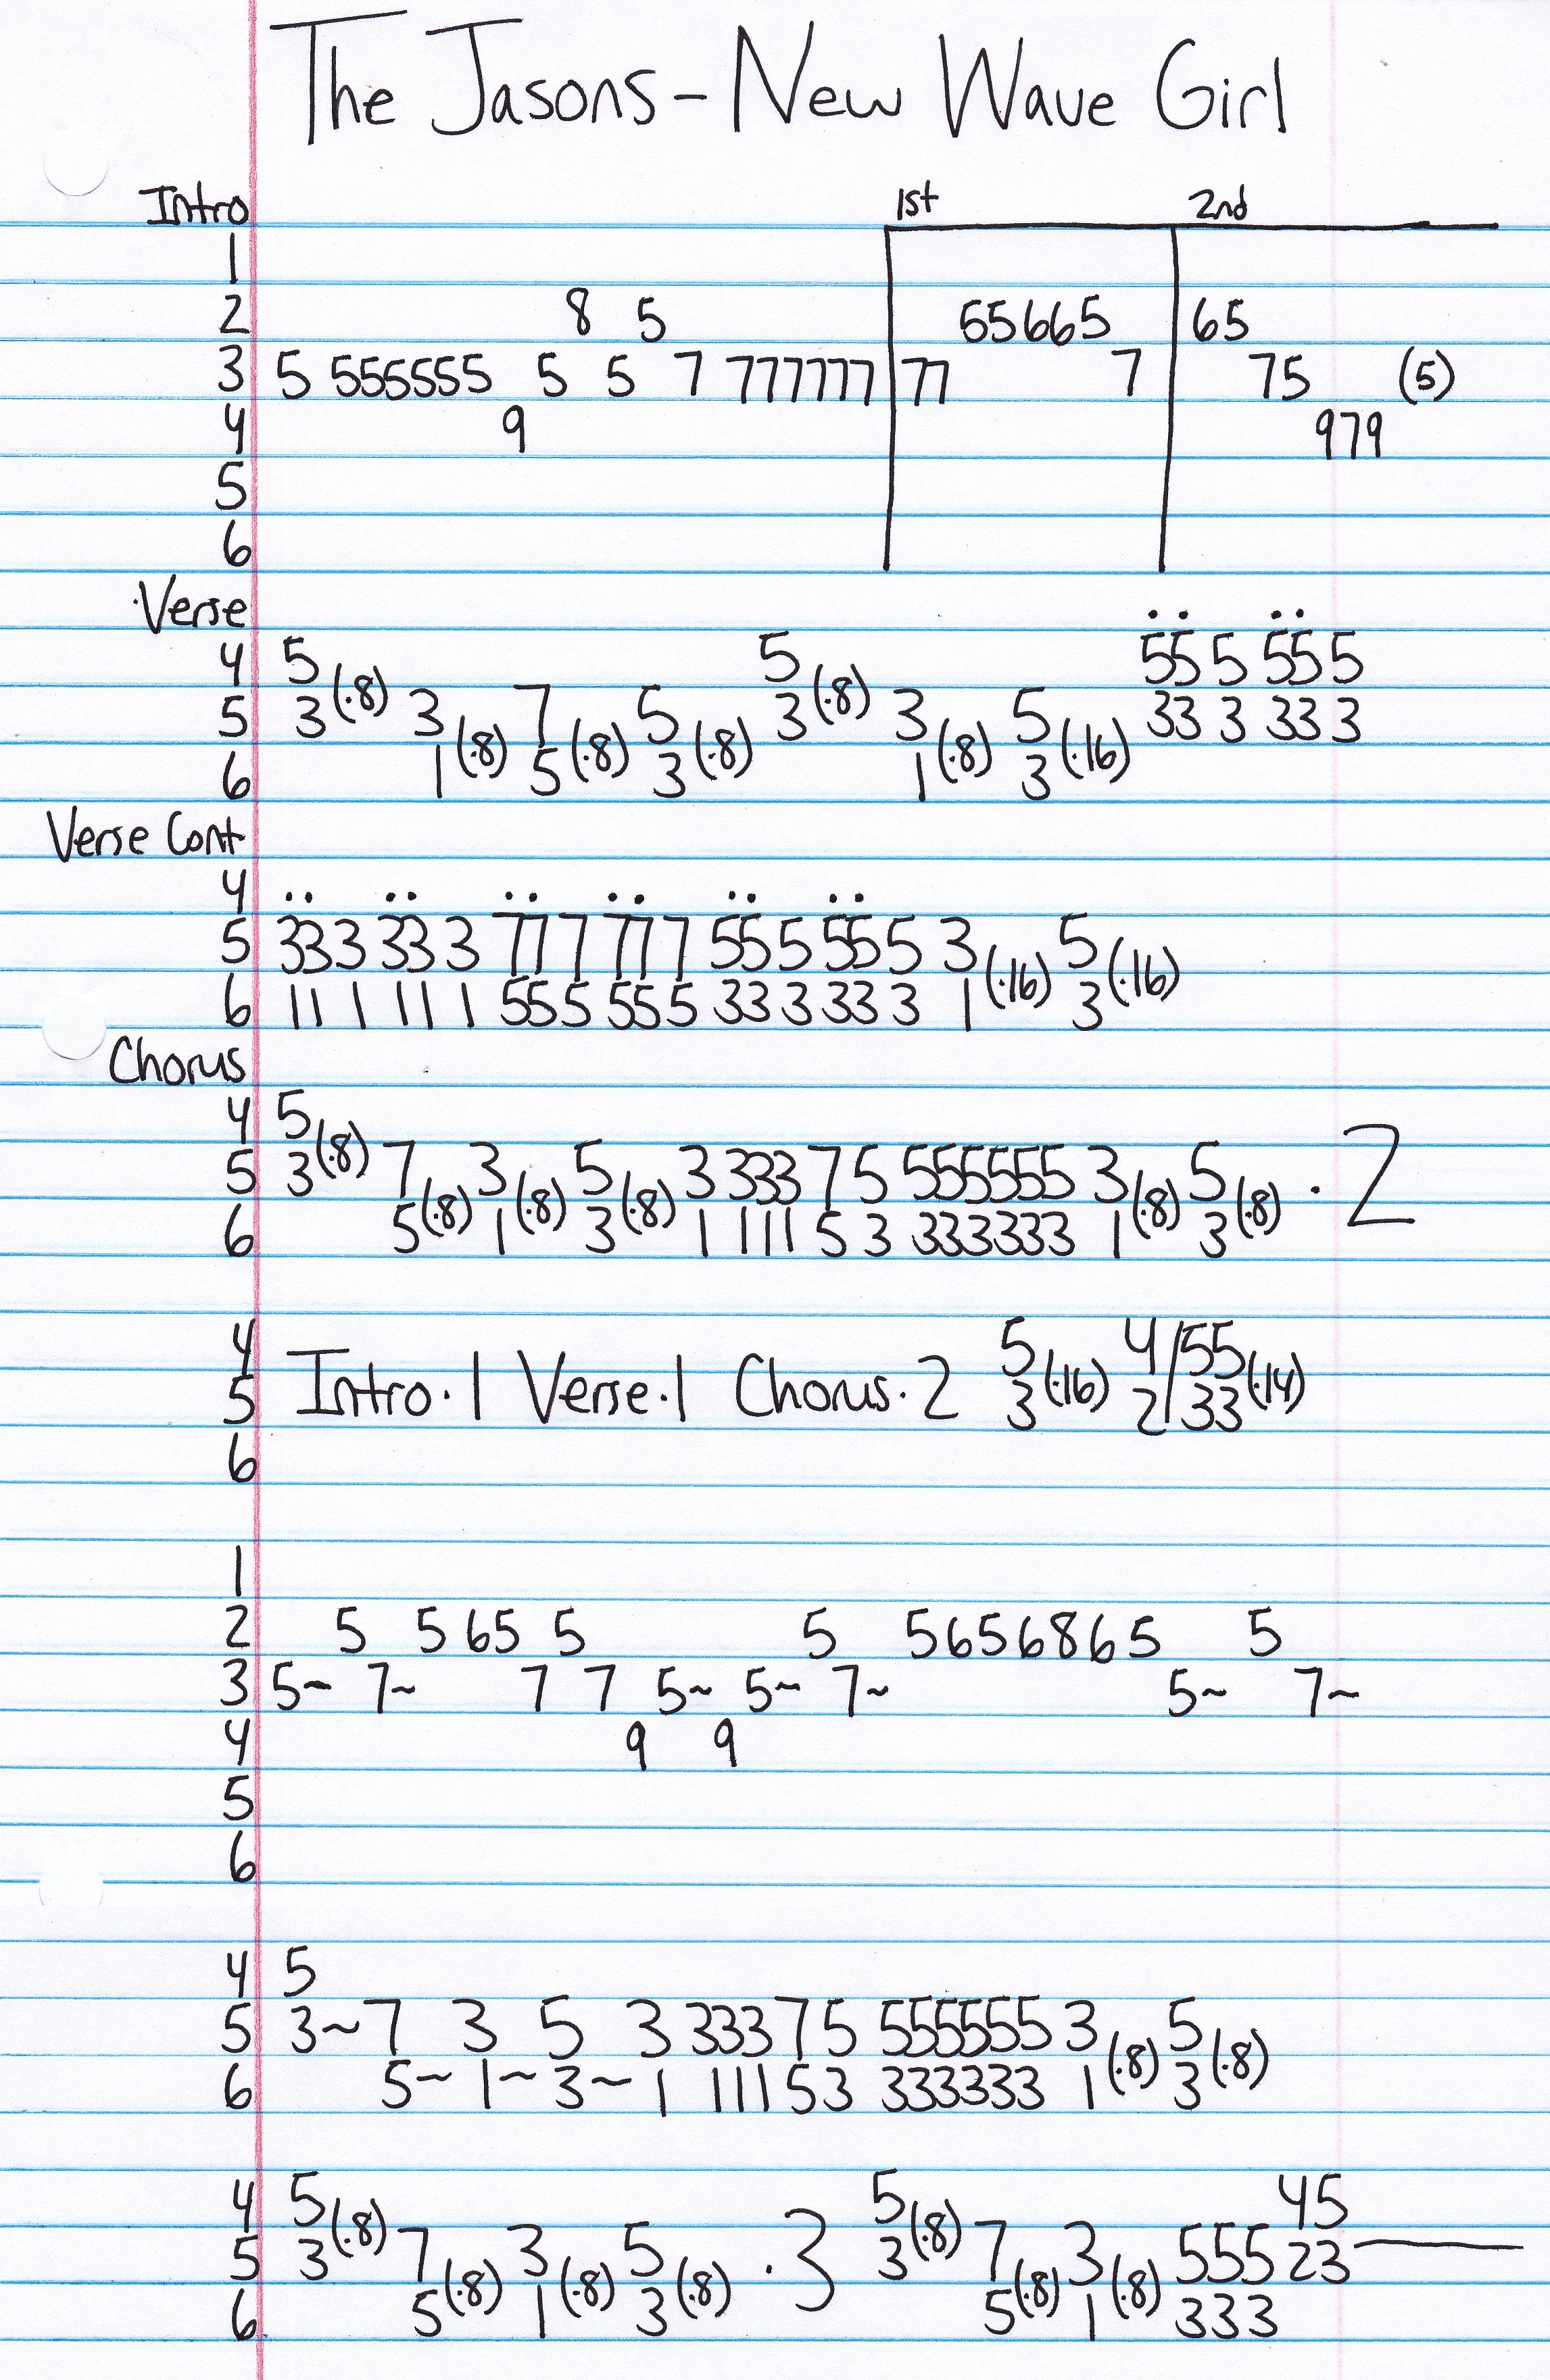 The Jasons - New Wave Girl
Intro 1st 2nd
1
2 8 5 55665 65
3 5 555555 5 5 7 777777 77 7 75 (5)
4 9 979
5
6
Verse
4 5 5 55 5 55 5
5 3(·8) 3 7 5 3(·8) 3 5 33 3 33 3
6 1(·8) 5(·8) 3(·8) 1(·8) 3(·16)
Verse Cont
4
5 333 33 3 77 7 77 7 55 5 55 5 3 5
6 11 1 11 1 55 5 55 5 33 3 33 3 1(·16) 3(·16)
Chorus
4 5
5 3(·8) 7 3 5 3 333 7 5 555555 3 5 · 2
6 5(·8) 1(·8) 3(·8) 1 111 5 3 333333 1(·8) 3(·8)
4 5 4/55
5 Intro·1 Verse·1 Chorus·2 3(·16) 2/33(·14)
6
1
2 5 5 65 5 5 5656865 5
3 5~ 7~ 7 7 5~ 5~ 7~ 5~ 7~
4 9 9
5
6
4 5
5 3~ 7 3 5 3 333 7 5 555555 3 5
6 5~ 1~ 3~ 1 111 5 3 333333 1(·8) 3(·8)
4 5 5 45
5 3(·8) 7 3 5 · 3 3(·8) 7 3 555 23
6 5(·8) 1(·8) 3(·8) 5(·8) 1(·8) 333